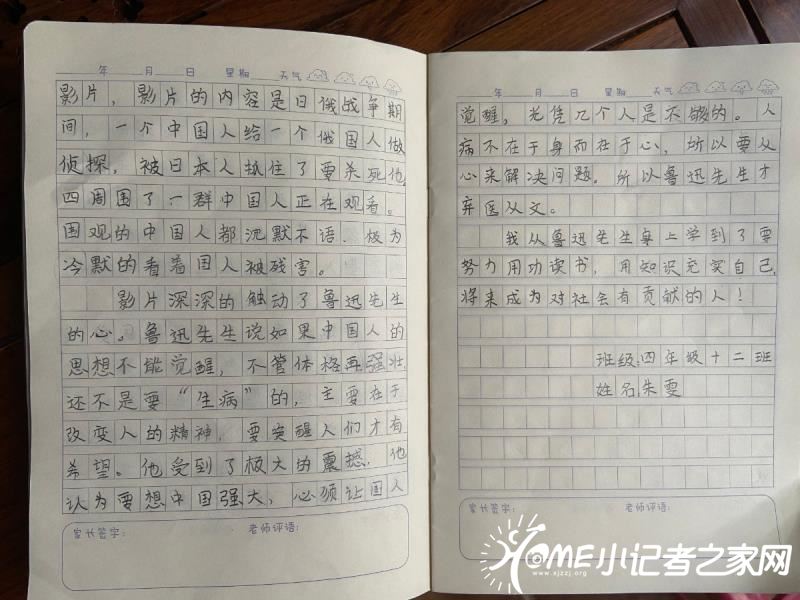 年 月 日 星期 天气
影片，影片的内容是日俄战争期
间，一个中国人给一个俄国人做
侦探，被日本人抓住了要杀死他，
四周围了一群中国人正在观看。
围观的中国人都沉默不语，极为
冷默的看着国人被残害。
影片深深的触动了鲁迅先生
的心。鲁迅先生说如果中国人的
思想不能觉醒，不管体格再强壮，
还不是要“生病”的，主要在于
改变人的精神，要唤醒人们才有
希望。他受到了极大的震撼，他
认为要想中国强大，必须让国人
家长签字： 老师评语：
年 月 日 星期 天气
觉醒，光凭几个人是不够的。人
病不在于身而在于心，所以要从
心来解决问题，所以鲁迅先生才
弃医从文。
我从鲁迅先生身上学到了要
努力用功读书，用知识充实自己，
将来成为对社会有贡献的人！
班级:四年级十二班
姓名:朱雯
家长签字： 老师评语：
HOME小记者之家网
www.xjzzj.org